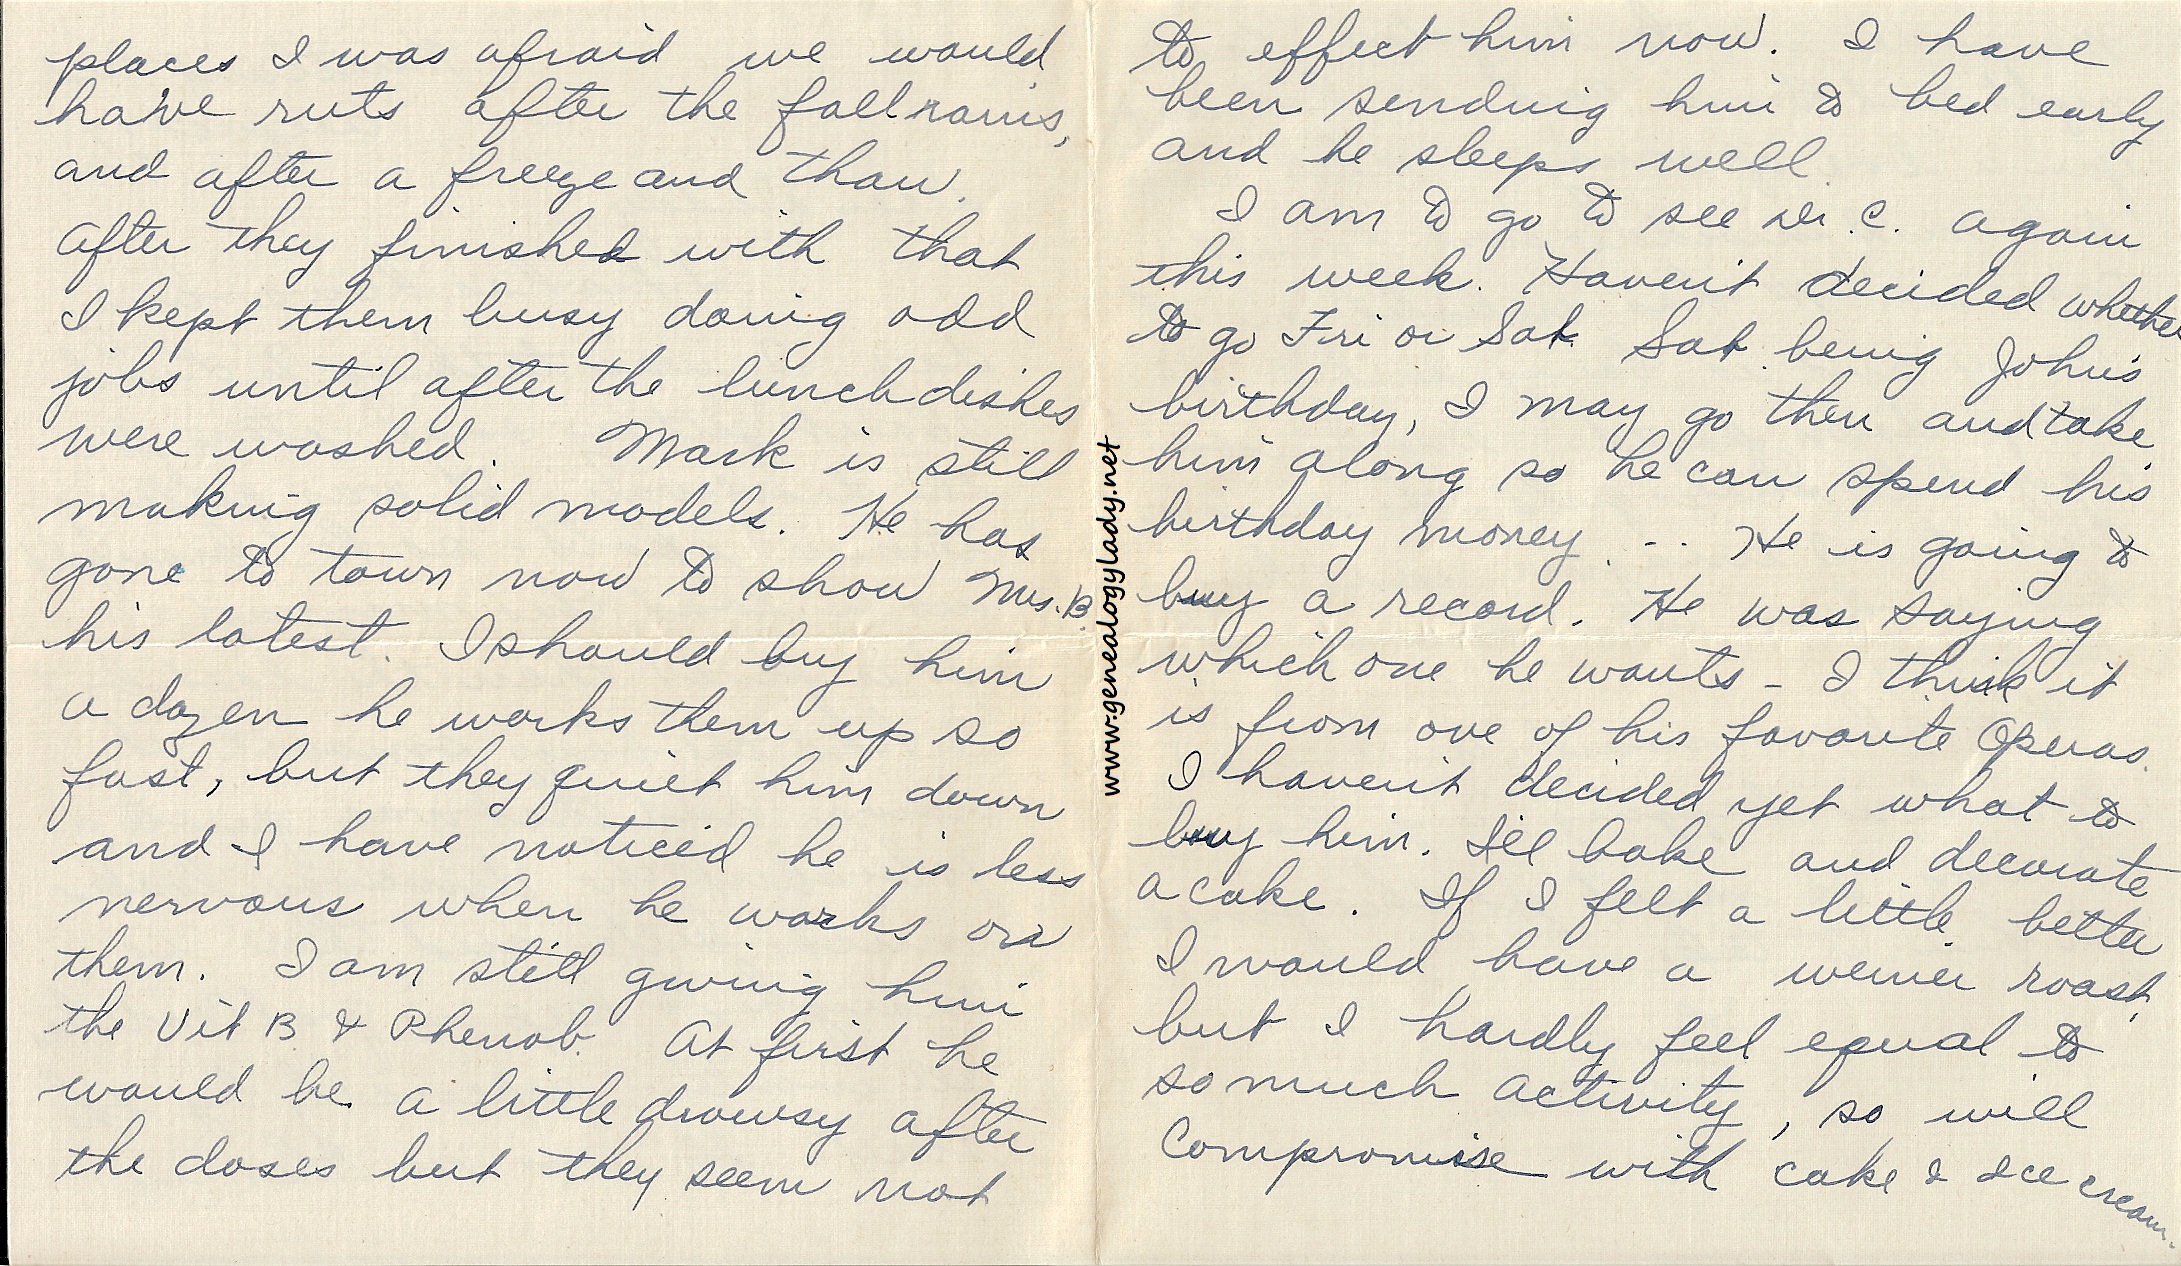 places I was afraid we would
have ruts after the fall rains,
and after a freeze and thaw.
After they finished with that
I kept them busy doing odd
jobs until after the lunch dishes
were washed. Mark is still
making solid models. He has
gone to town now to show Mrs. B.
his latest. I should buy him
a dozen he works them up so
fast, but they quiet him down
and I have noticed he is less
nervous when he works on
them. I am still giving him
the Vit B & Phenob. At first he
would be a little drowsy after
the doses but they seem not
to effect him now. I have
been sending him to bed early
and he sleeps well.
I am to go to see Dr. C. again
this week. Haven't decided whether
to go Fri or Sat. Sat. being John's
birthday, I may go then and take
him along so he can spend his
birthday money. .. He is going to
buy a record. He was saying
which one he wants - I think it
is from one of his favorite Operas.
I haven't decided yet what to
buy him. I'll bake and decorate
a cake. If I felt a little better
I would have a weiner roast,
but I hardly feel equal to
so much activity, so will
Compromise with cake & Ice cream.
www.genealogylady.net